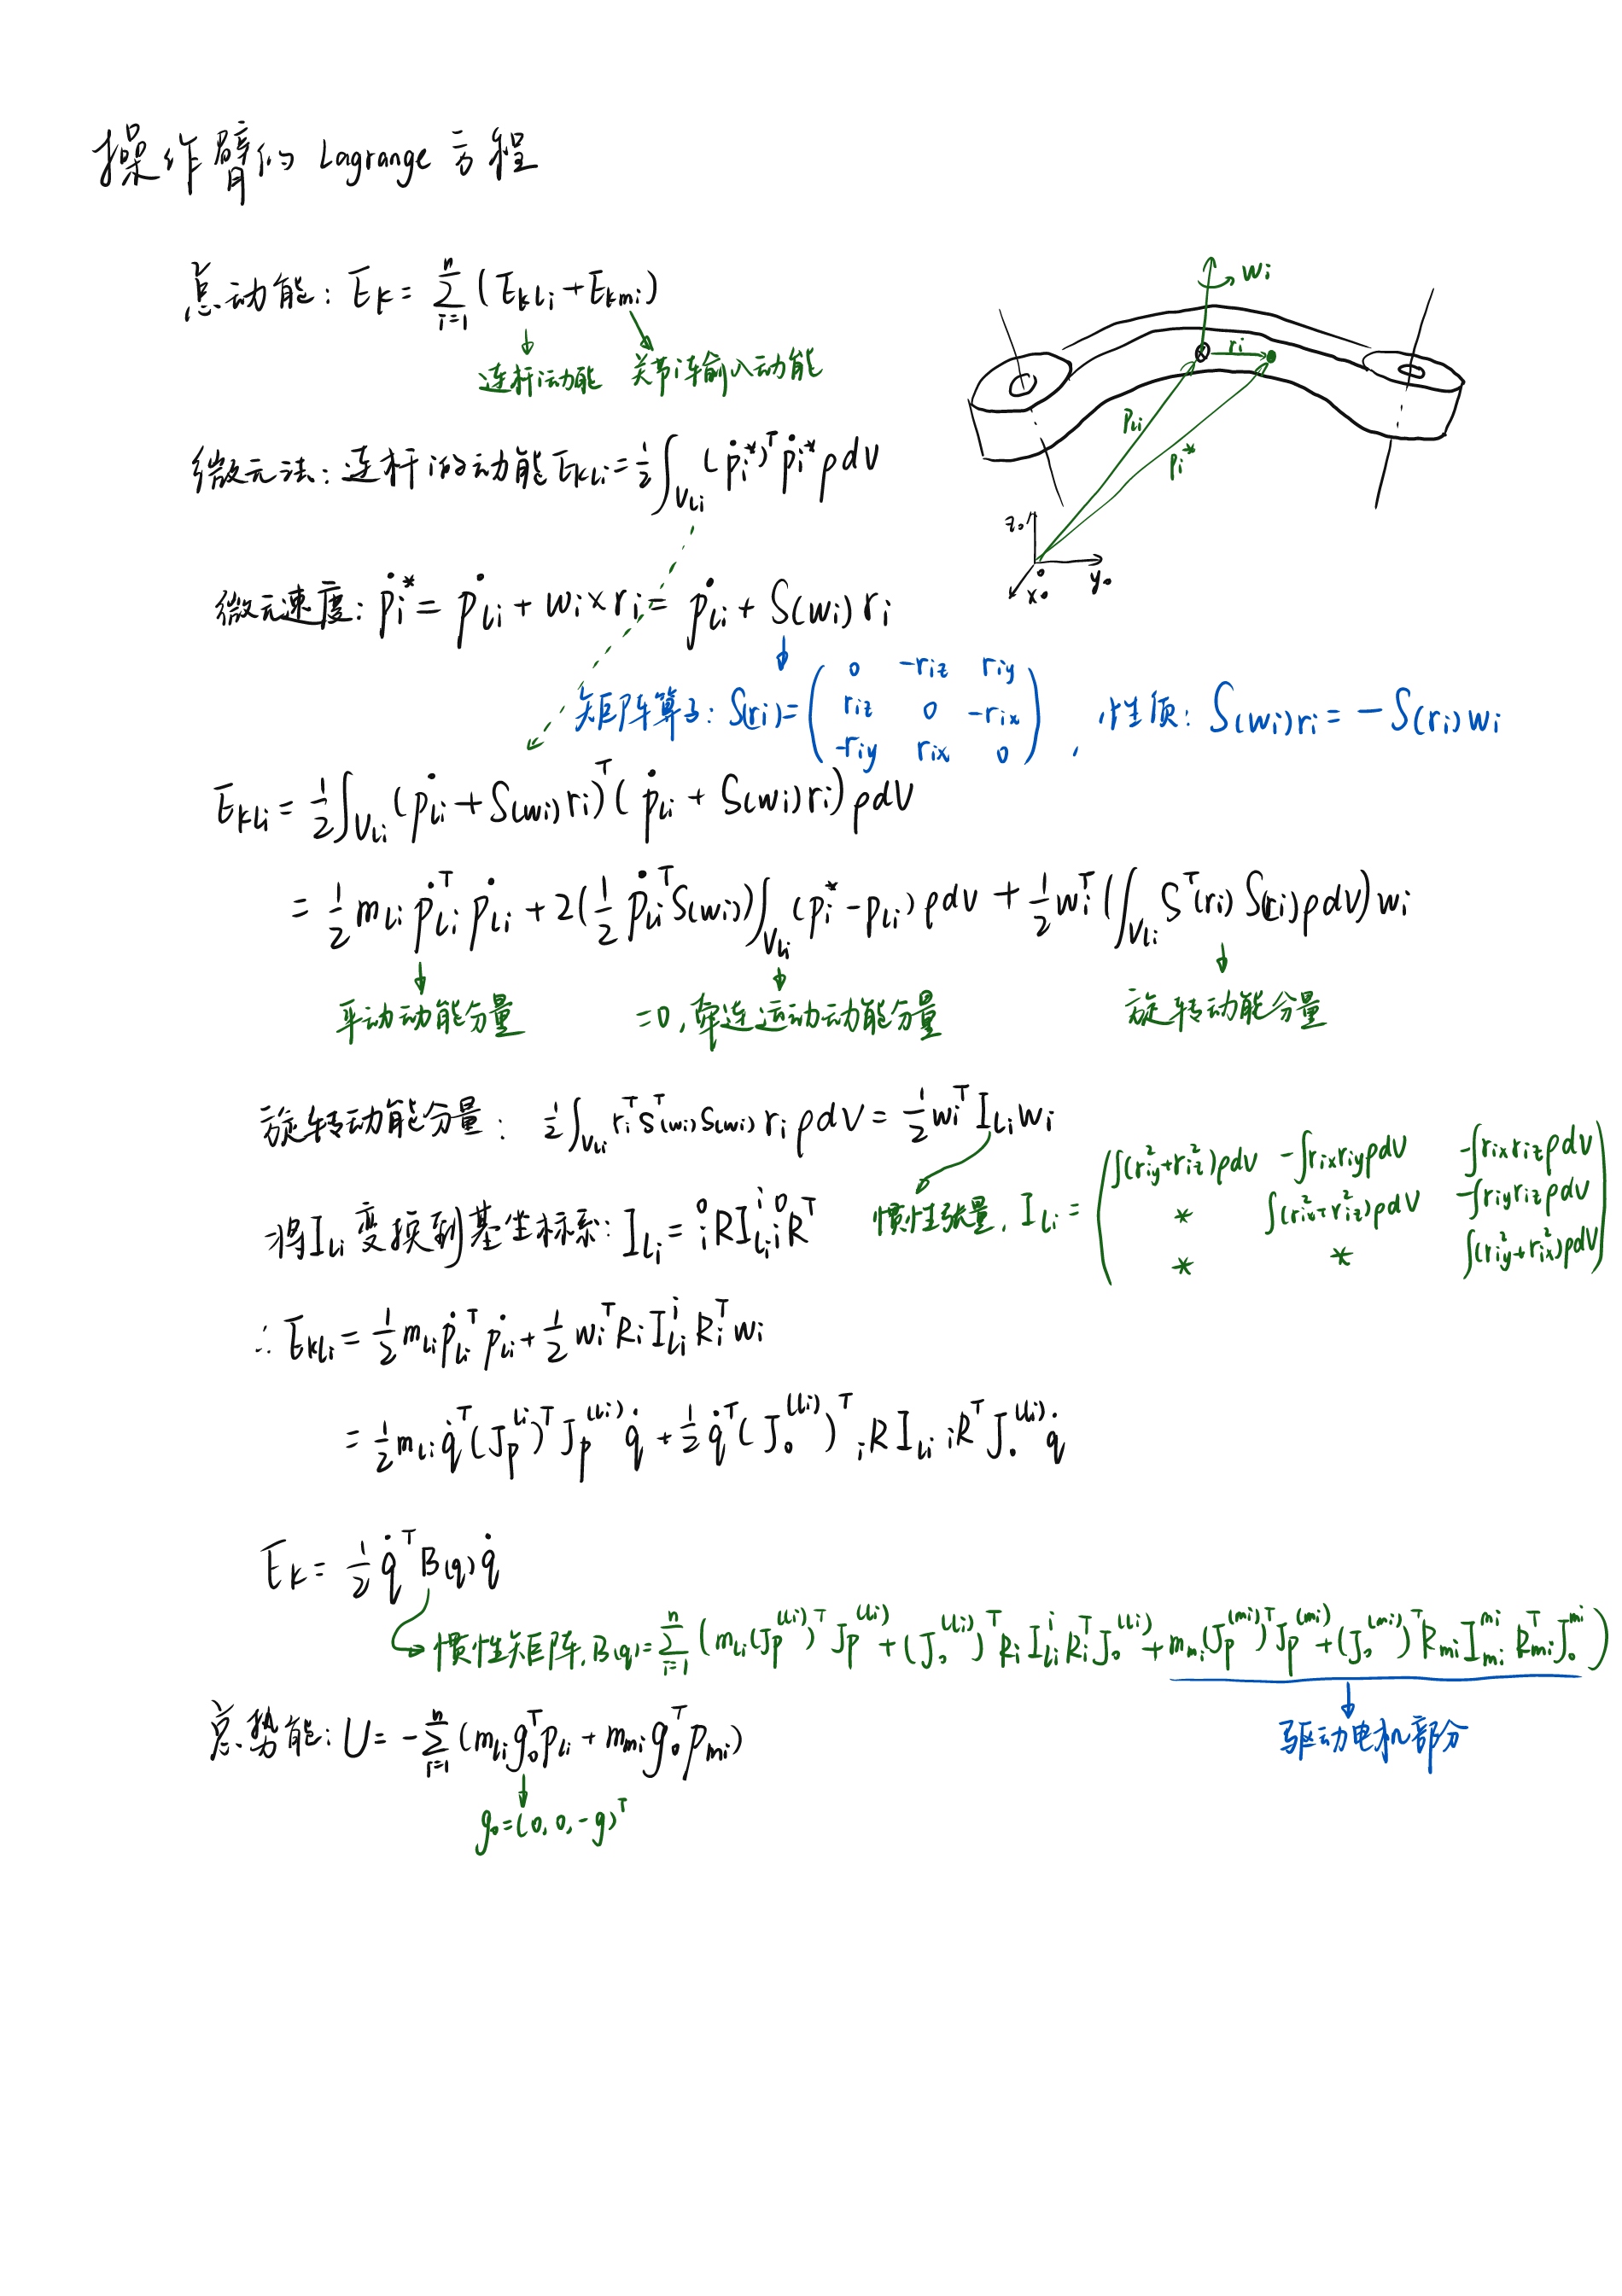 操作臂的 Lagrange 方程
总动能: E_k = \sum_{i=1}^{n} (E_{kli} + E_{kmi})
连杆i动能 关节i车输入动能
ω_i
r_i
p_{li}
p_i^*
z_0
y_0
x_0
微元法: 连杆i的动能 E_{kli} = \frac{1}{2} \int_{V_{li}} (\dot{p}_i^*)^T \dot{p}_i^* ρ dV
微元速度: \dot{p}_i^* = \dot{p}_{li} + ω_i × r_i = \dot{p}_{li} + S(ω_i) r_i
矩阵算子: S(r_i) = \begin{pmatrix} 0 & -r_{iz} & r_{iy} \\ r_{iz} & 0 & -r_{ix} \\ -r_{iy} & r_{ix} & 0 \end{pmatrix}, 性质: S(ω_i) r_i = -S(r_i) ω_i
E_{kli} = \frac{1}{2} \int_{V_{li}} (\dot{p}_{li} + S(ω_i) r_i)^T (\dot{p}_{li} + S(ω_i) r_i) ρ dV
= \frac{1}{2} m_{li} \dot{p}_{li}^T \dot{p}_{li} + 2(\frac{1}{2} \dot{p}_{li}^T S(ω_i)) \int_{V_{li}} (p_i^* - p_{li}) ρ dV + \frac{1}{2} ω_i^T (\int_{V_{li}} S^T(r_i) S(r_i) ρ dV) ω_i
平动动能分量 =0, 牵连运动动能分量 旋转动能分量
旋转动能分量: \frac{1}{2} \int_{V_{li}} r_i^T S^T(ω_i) S(ω_i) r_i ρ dV = \frac{1}{2} ω_i^T I_{li} ω_i
惯性张量, I_{li} = \begin{pmatrix} \int (r_{iy}^2 + r_{iz}^2) ρ dV & -\int r_{ix} r_{iy} ρ dV & -\int r_{ix} r_{iz} ρ dV \\ * & \int (r_{ix}^2 + r_{iz}^2) ρ dV & -\int r_{iy} r_{iz} ρ dV \\ * & * & \int (r_{iy}^2 + r_{ix}^2) ρ dV \end{pmatrix}
将 I_{li} 变换到基坐标系: I_{li} = {}^0_i R I_{li}^i {}^0_i R^T
∴ E_{kli} = \frac{1}{2} m_{li} \dot{p}_{li}^T \dot{p}_{li} + \frac{1}{2} ω_i^T R_i I_{li}^i R_i^T ω_i
= \frac{1}{2} m_{li} \dot{q}^T (J_p^{li})^T J_p^{(li)} \dot{q} + \frac{1}{2} \dot{q}^T (J_o^{(li)})^T {}_i R I_{li} {}_i R^T J_o^{(li)} \dot{q}
E_k = \frac{1}{2} \dot{q}^T B(q) \dot{q}
惯性矩阵, B(q) = \sum_{i=1}^{n} (m_{li} (J_p^{(li)})^T J_p^{(li)} + (J_o^{(li)})^T R_i I_{li}^i R_i^T J_o^{(li)} + m_{mi} (J_p^{(mi)})^T J_p^{(mi)} + (J_o^{(mi)})^T R_{mi} I_{mi}^{mi} R_{mi}^T J_o^{mi})
驱动电机部分
总势能: U = -\sum_{i=1}^{n} (m_{li} g_0^T p_{li} + m_{mi} g_0^T p_{mi})
g_0 = (0, 0, -g)^T